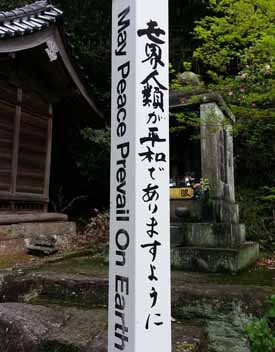 May Peace Prevail On Earth
世界人類が平和でありますように